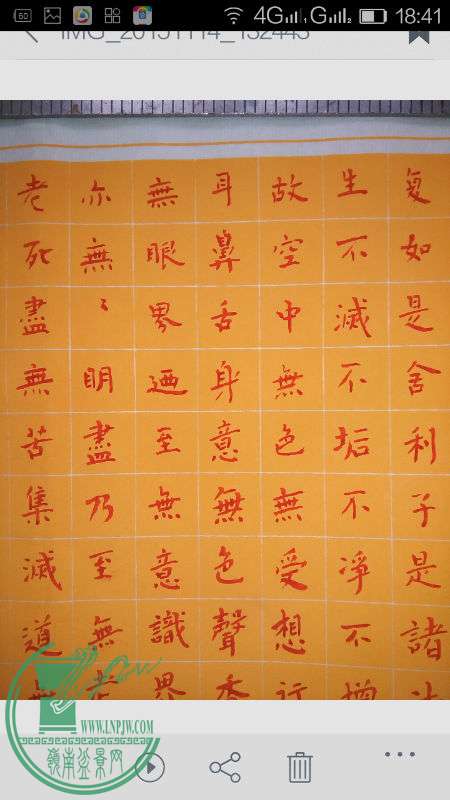 60 4G 1 G 2 18:41
IMG_20151114_132443
复如是舍利子是諸
生不滅不垢不淨不增
故空中無色無受想行
耳鼻舌身意無色聲香
無眼界迺至無意識界
亦無〻明盡乃至無老
老死盡無苦集滅道
WWW.LNPJW.COM
嶺南盆景网